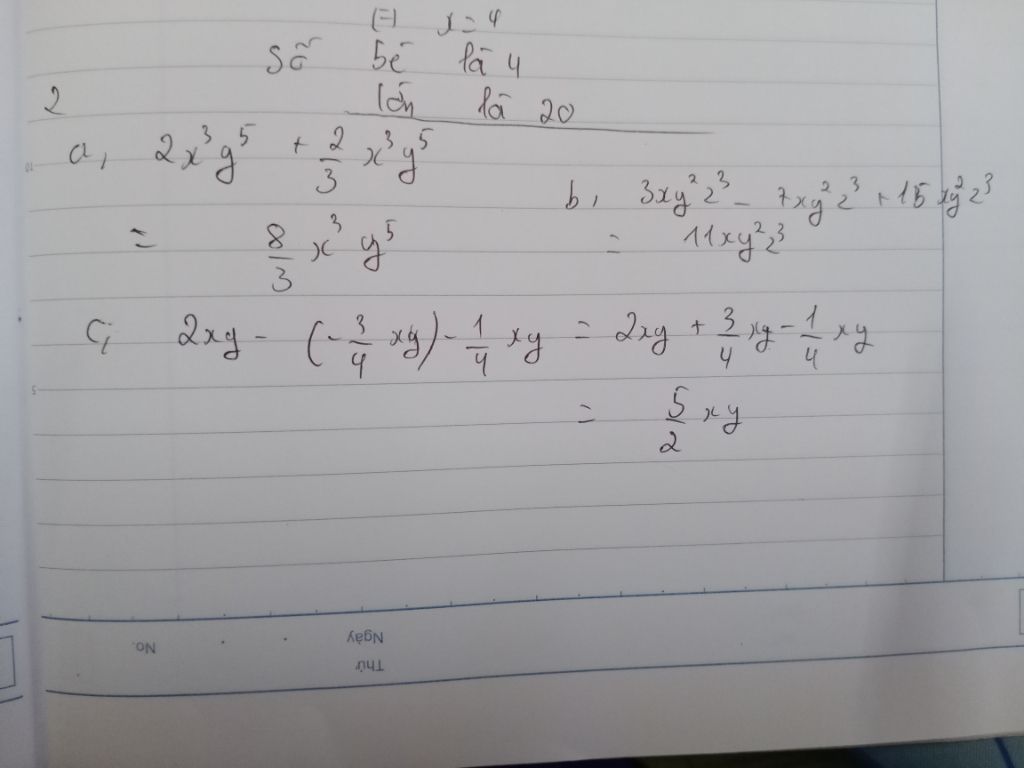 (=) x = 4
Số bé là 4
2 lớn là 20
a, 2x³y⁵ + 2/3 x³y⁵
= 8/3 x³y⁵
b, 3xy²z³ - 7xy²z³ + 15xy²z³
= 11xy²z³
c, 2xy - (-3/4 xy) - 1/4 xy = 2xy + 3/4 xy - 1/4 xy
= 5/2 xy
Thứ
Ngày
No.
10
5